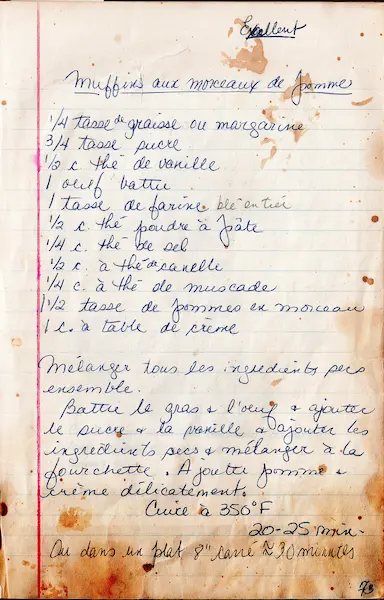 Excellent
Muffins aux morceaux de pomme
1/4 tasse de graisse ou margarine
3/4 tasse sucre
1/2 c. thé de vanille
1 oeuf battu
1 tasse de farine blé entier
1/2 c. thé poudre à pâte
1/4 c. thé de sel
1/2 c. à thé de canelle
1/4 c. à thé de muscade
1 1/2 tasse de pommes en morceau
1 c. à table de crème
Mélanger tous les ingrédients secs
ensemble.
Battre le gras & l'oeuf & ajouter
le sucre & la vanille & ajouter les
ingrédients secs & mélanger à la
fourchette. Ajouter pomme &
crème délicatement.
Cuire à 350°F
20-25 min.
Ou dans un plat 8" carré ≈ 30 minutes